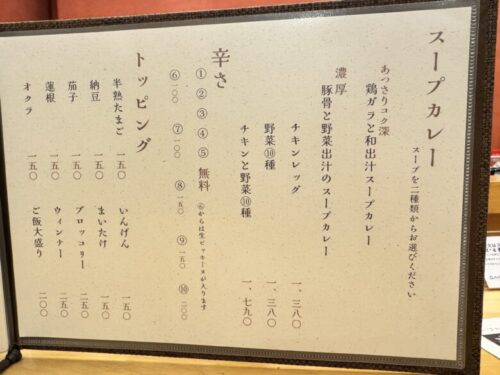 スープカレー
スープを二種類からお選びください
あっさりコク深
鶏ガラと和出汁スープカレー
濃厚
豚骨と野菜出汁のスープカレー
チキンレッグ 一、三八〇
野菜⑩種 一、三八〇
チキンと野菜⑩種 一、七九〇
辛さ
① ② ③ ④ ⑤ 無料 ⑥からは生ピッキーヌが入ります
⑥ 一〇〇 ⑦ 一〇〇 ⑧ 一五〇 ⑨ 一五〇 ⑩ 二〇〇
トッピング
半熟たまご 一五〇 いんげん 一五〇
納豆 一五〇 まいたけ 一五〇
茄子 一五〇 ブロッコリー 二五〇
蓮根 一五〇 ウィンナー 二五〇
オクラ 一五〇 ご飯大盛り 二〇〇